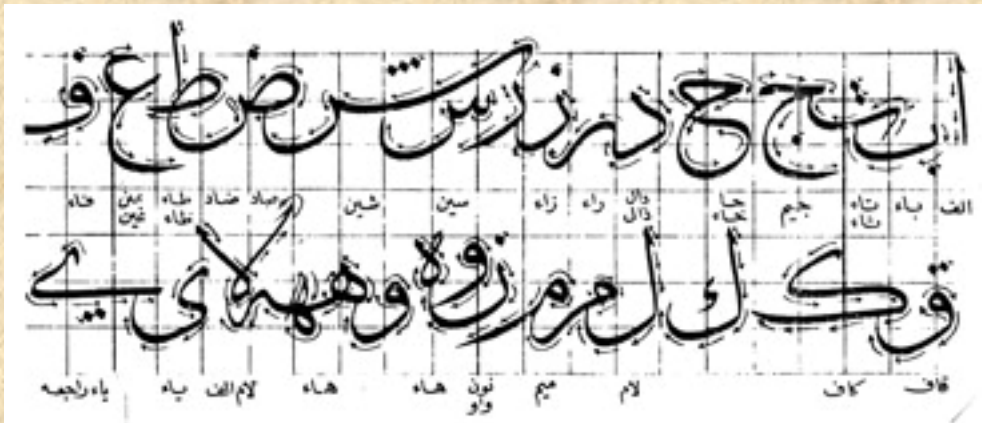 ا ب ت ج ح د ر ز ر س ش ض ط ع ف
الف باء تاء ثاء جيم حا خاء دال ذال راء زاء سين شين صاد ضاد طاء ظاء عين غين فاء
ق ک ك ل م م ز و ه و ههه لا ي ے
قاف كاف لام ميم نون واو هاء هاء لام الف ياء ياء راجعه